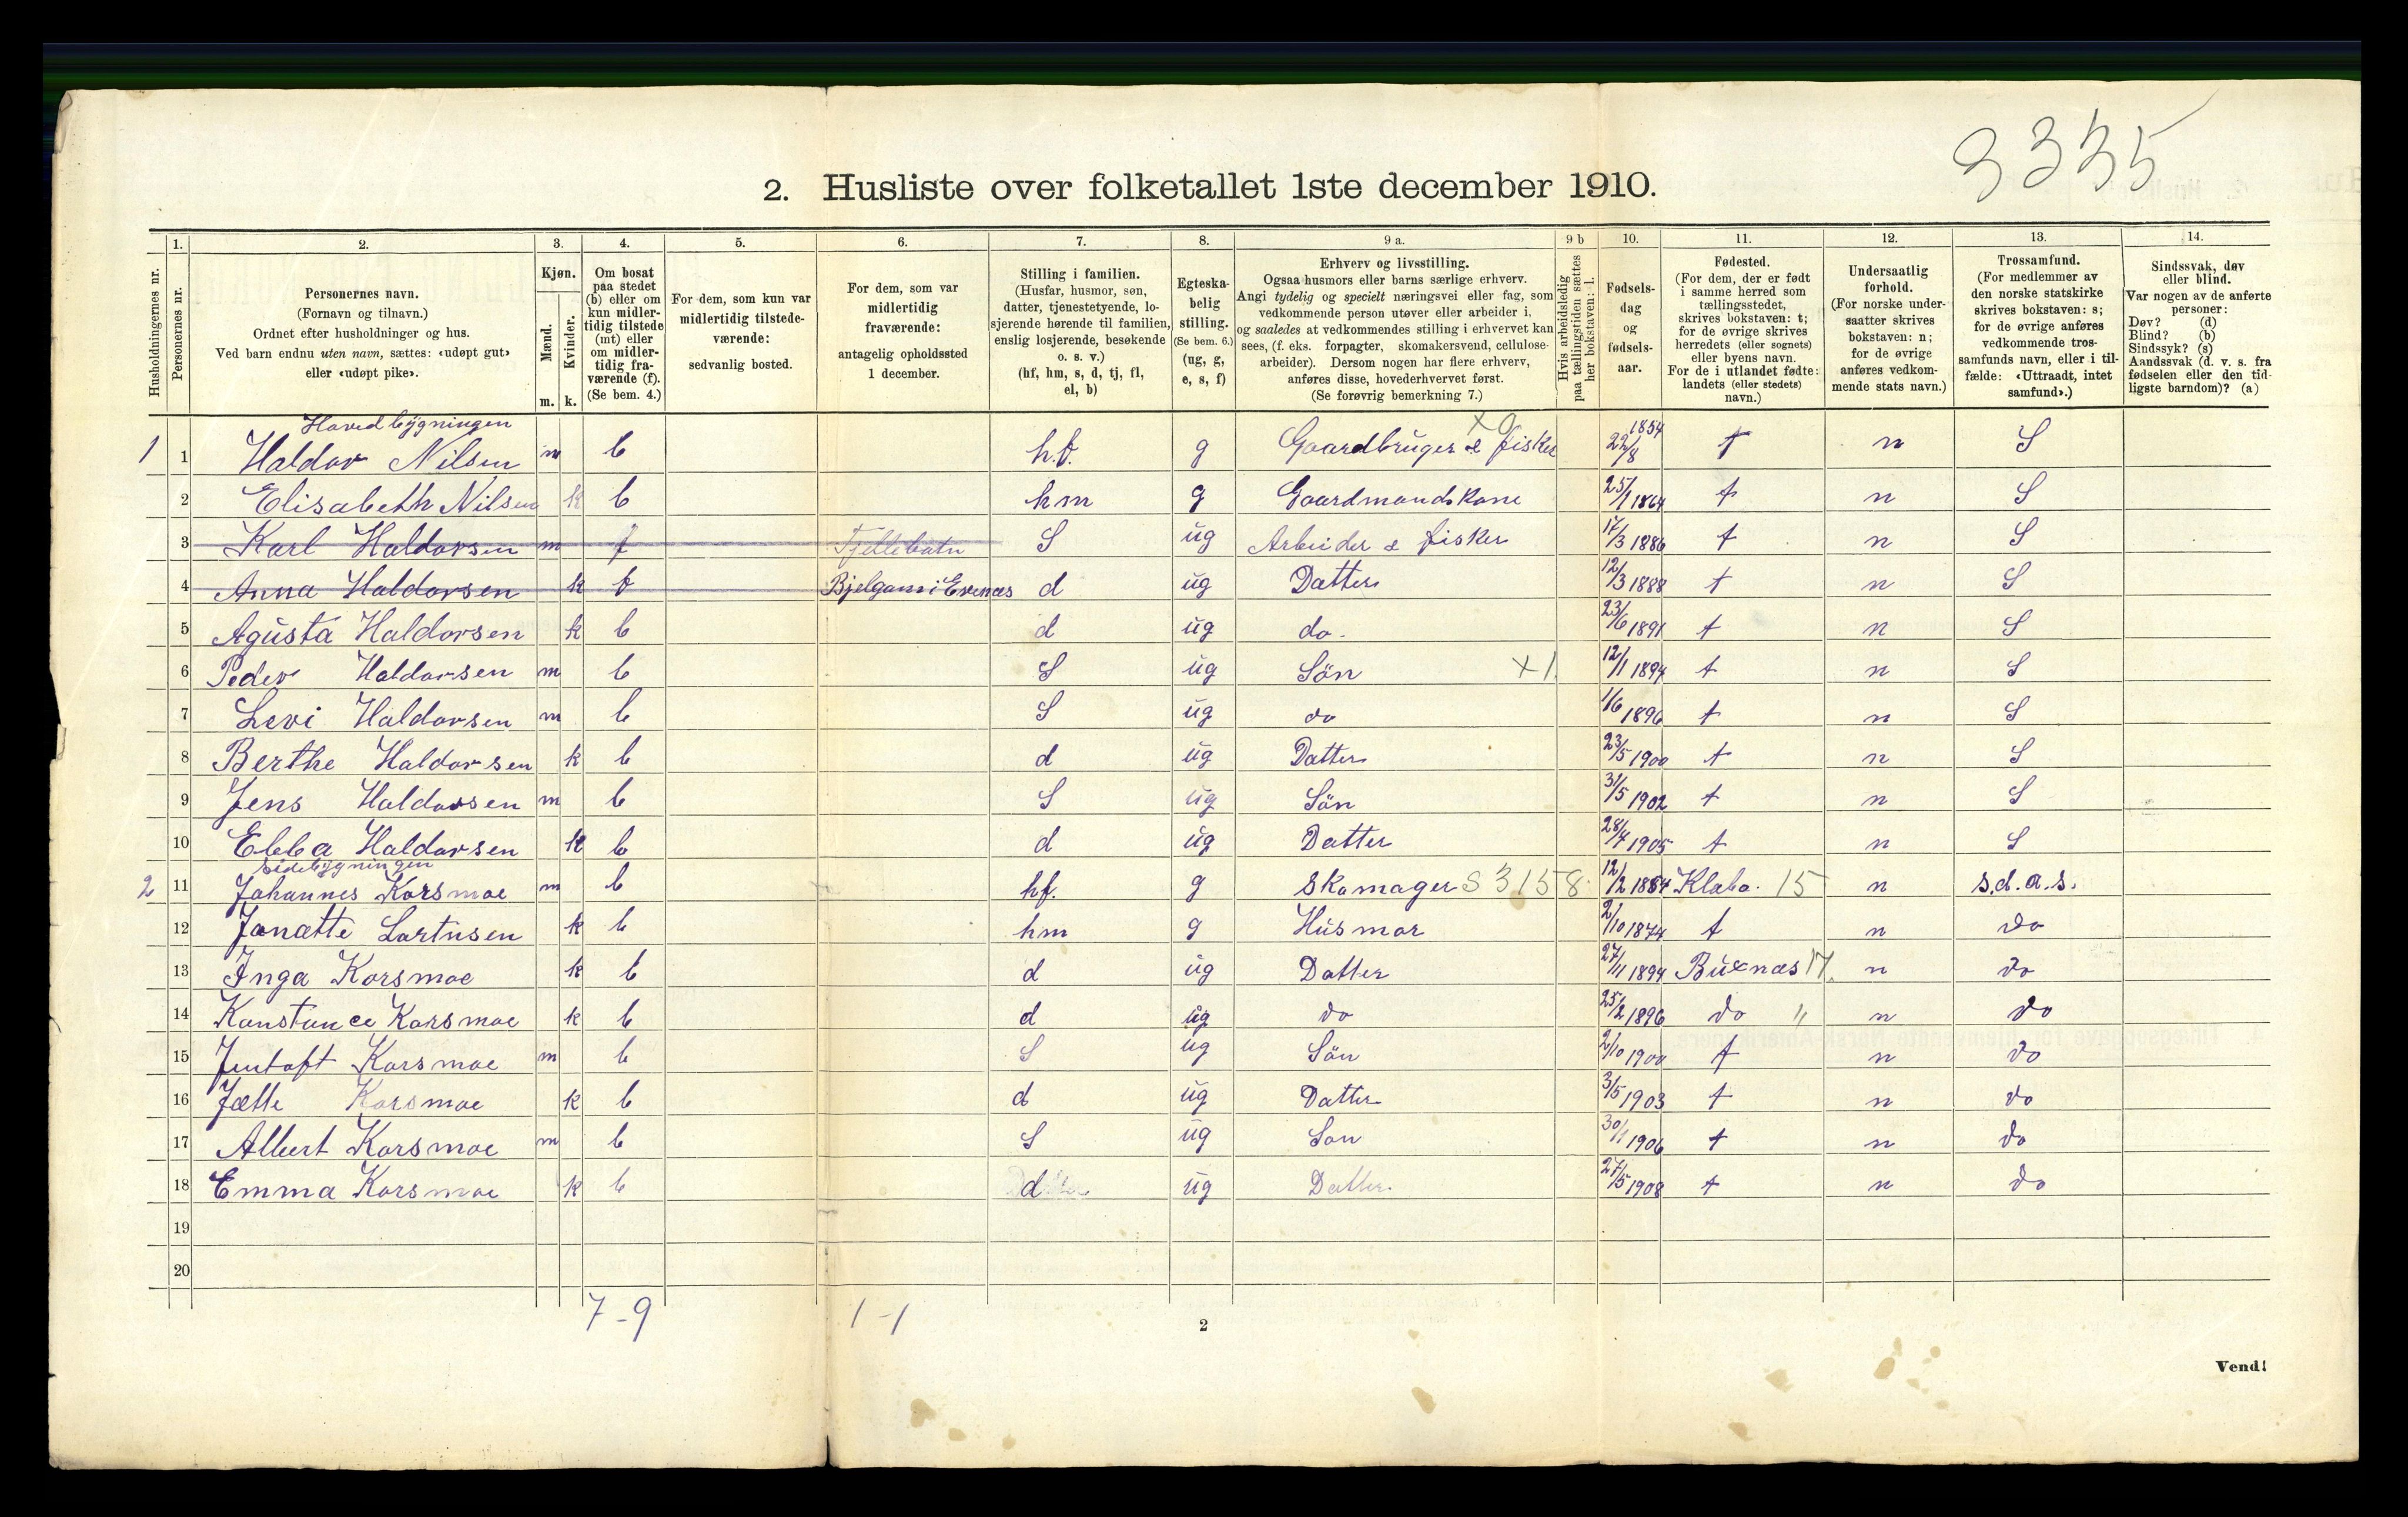 3335
2. Husliste over folketallet 1ste december 1910.
Husholdningernes nr.
1.
Personernes nr.
2.
Personernes navn.
(Fornavn og tilnavn.)
Ordnet efter husholdninger og hus.
Ved barn endnu uten navn, sættes: «udøpt gut»
eller «udøpt pike».
3.
Kjøn.
Mænd.
Kvinder.
m. k.
4.
Om bosat
paa stedet
(b) eller om
kun midler-
tidig tilstede
(mt) eller
om midler-
tidig fra-
værende (f).
(Se bem. 4.)
5.
For dem, som kun var
midlertidig tilstede-
værende:
sedvanlig bosted.
6.
For dem, som var
midlertidig
fraværende:
antagelig opholdssted
1 december.
7.
Stilling i familien.
(Husfar, husmor, søn,
datter, tjenestetyende, lo-
sjerende hørende til familien,
enslig losjerende, besøkende
o. s. v.)
(hf, hm, s, d, tj, fl,
el, b)
8.
Egteska-
belig
stilling.
(Se bem. 6.)
(ug, g,
e, s, f)
9 a.
Erhverv og livsstilling.
Ogsaa husmors eller barns særlige erhverv.
Angi tydelig og specielt næringsvei eller fag, som
vedkommende person utøver eller arbeider i,
og saaledes at vedkommendes stilling i erhvervet kan
sees, (f. eks. forpagter, skomakersvend, cellulose-
arbeider). Dersom nogen har flere erhverv,
anføres disse, hovederhvervet først.
(Se forøvrig bemerkning 7.)
9 b
Hvis arbeidsledig
paa tællingstiden sættes
her bokstaven: l.
10.
Fødsels-
dag
og
fødsels-
aar.
11.
Fødested.
(For dem, der er født
i samme herred som
tællingsstedet,
skrives bokstaven: t;
for de øvrige skrives
herredets (eller sognets)
eller byens navn.
For de i utlandet fødte:
landets (eller stedets)
navn.)
12.
Undersaatlig
forhold.
(For norske under-
saatter skrives
bokstaven: n;
for de øvrige
anføres vedkom-
mende stats navn.)
13.
Trossamfund.
(For medlemmer av
den norske statskirke
skrives bokstaven: s;
for de øvrige anføres
vedkommende tros-
samfunds navn, eller i til-
fælde: «Uttraadt, intet
samfund».)
14.
Sindssvak, døv
eller blind.
Var nogen av de anførte
personer:
Døv? (d)
Blind? (b)
Sindssyk? (s)
Aandssvak (d. v. s. fra
fødselen eller den tid-
ligste barndom)? (a)
Hovedbygningen
1 1 Haldor Nilsen m b h.f. g Gaardbruger & fisker 22/8 1854 t n S
2 Elisabeth Nilsen k b hm g Gaardmandskone 25/1 1864 t n S
3 Karl Haldorsen m f S ug Arbeider & fisker 17/3 1886 t n S
4 Anna Haldorsen k f Bjelgam i Evenæs d ug Datter 12/3 1888 t n S
5 Agusta Haldorsen k b d ug do. 23/6 1891 t n S
6 Peder Haldorsen m b S ug Sön x1 12/1 1894 t n S
7 Levi Haldorsen m b S ug do 1/6 1896 t n S
8 Berthe Haldorsen k b d ug Datter 23/5 1900 t n S
9 Jens Haldorsen m b S ug Sön 31/5 1902 t n S
10 Ebba Haldorsen k b d ug Datter 28/4 1905 t n S
Sidebygningen
2 11 Johannes Korsmoe m b hf. g Skomager S 3158 12/2 1854 Klæbo. 15 n s.d.a.s.
12 Jonætte Lortnsen k b hm g Husmor 2/10 1874 t n do
13 Inga Korsmoe k b d ug Datter 27/11 1894 Buxnæs 17. n do
14 Konstance Korsmoe k b d ug do 25/2 1896 do " n do
15 Jentoft Korsmoe m b S ug Sön 2/10 1900 t n do
16 Jætte Korsmoe k b d ug Datter 3/5 1903 t n do
17 Albert Korsmoe m b S ug Son 30/1 1906 t n do
18 Emma Korsmoe k b d ug Datter 27/5 1908 t n do
19
20
7-9 1-1
2
Vend!